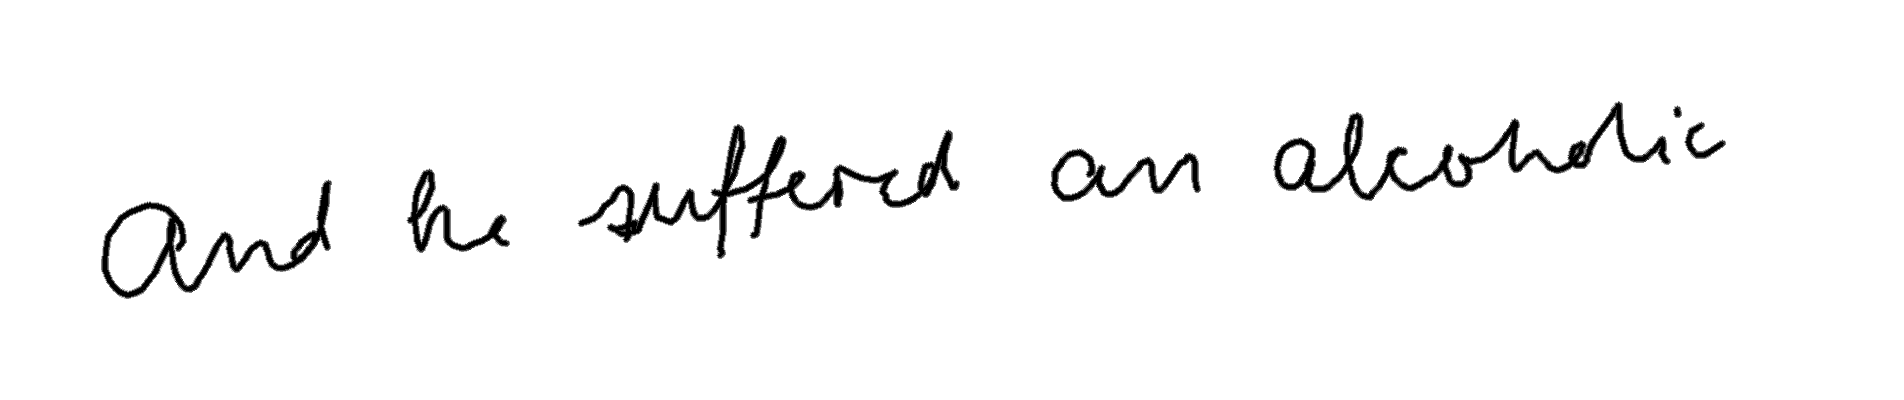 And he suffered an alcoholic